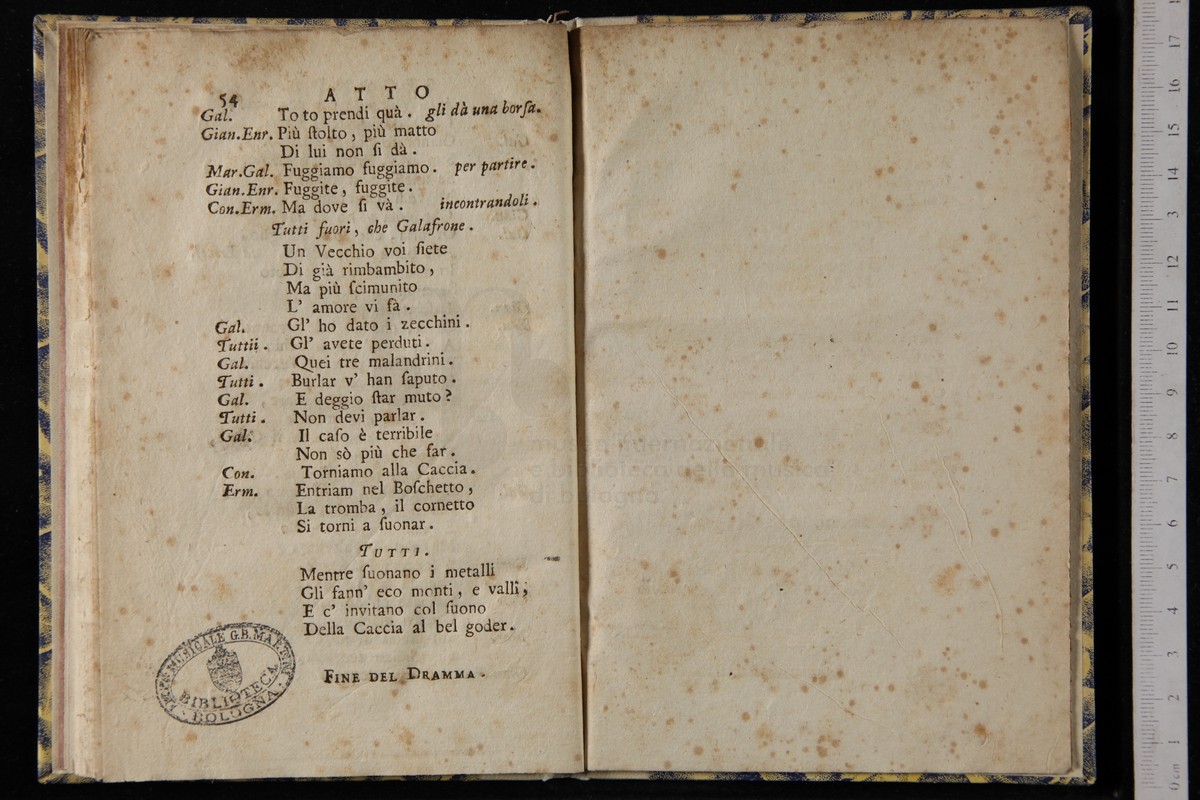 54 A T T O
Gal. To to prendi quà . gli dà una borſa.
Gian.Enr. Più ſtolto , più matto
Di lui non ſi dà .
Mar.Gal. Fuggiamo fuggiamo . per partire .
Gian.Enr. Fuggite , fuggite .
Con.Erm. Ma dove ſi và . incontrandoli .
Tutti fuori , che Galafrone .
Un Vecchio voi ſiete
Di già rimbambito ,
Ma più ſcimunito
L' amore vi fà .
Gal. Gl' ho dato i zecchini .
Tuttii . Gl' avete perduti .
Gal. Quei tre malandrini .
Tutti . Burlar v' han ſaputo .
Gal. E deggio ſtar muto ?
Tutti . Non devi parlar .
Gal. Il caſo è terribile
Non sò più che far .
Con. Torniamo alla Caccia .
Erm. Entriam nel Boſchetto ,
La tromba , il cornetto
Si torni a ſuonar .
TUTTI .
Mentre ſuonano i metalli
Gli fann' eco monti , e valli ;
E c' invitano col ſuono
Della Caccia al bel goder .
FINE DEL DRAMMA .
MUSICALE G.B. MARTINI
BIBLIOTECA
BOLOGNA
museo internazionale
e biblioteca della musica
di bologna
0 cm 1 2 3 4 5 6 7 8 9 10 11 12 3 14 15 16 17